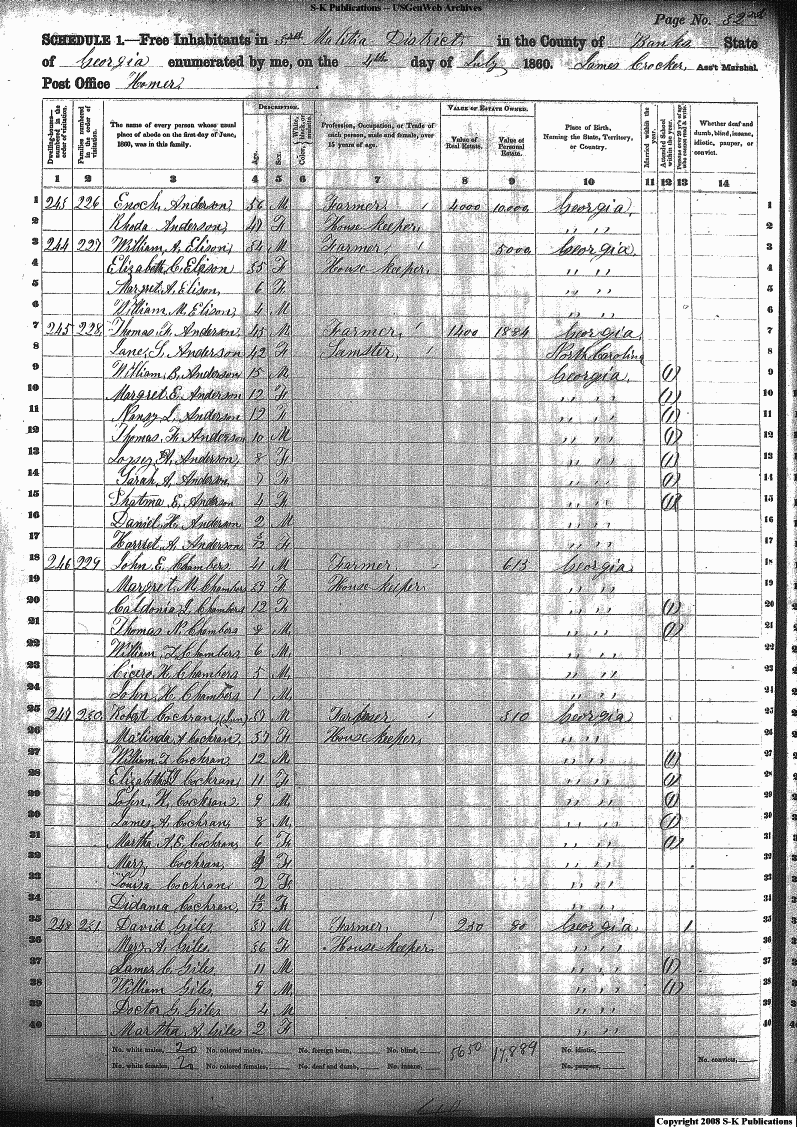 S-K Publications – USGenWeb Archives
Page No. 82nd
SCHEDULE 1.—Free Inhabitants in Malitia District in the County of Banks State
of Georgia enumerated by me, on the 4th day of July 1860. James Crocker, Ass't Marshal.
Post Office Homer
Dwelling-houses—numbered in the order of visitation.
Families numbered in the order of visitation.
The name of every person whose usual place of abode on the first day of June, 1860, was in this family.
DESCRIPTION.
Age.
Sex.
Color, White, black, or mulatto.
Profession, Occupation, or Trade of each person, male and female, over 15 years of age.
VALUE OF ESTATE OWNED.
Value of Real Estate.
Value of Personal Estate.
Place of Birth, Naming the State, Territory, or Country.
Married within the year.
Attended School within the year.
Persons over 20 y'rs of age who cannot read & write.
Whether deaf and dumb, blind, insane, idiotic, pauper, or convict.
1 2 3 4 5 6 7 8 9 10 11 12 13 14
1 226 Enoch Anderson 56 M Farmer 4000 10,000 Georgia 1
2 Rhoda Anderson 47 F House keeper " " 2
3 244 227 William A. Elison 54 M Farmer 5000 Georgia 3
4 Elizabeth C. Elison 35 F House keeper " " 4
5 Margret A. Elison 6 F " " 5
6 William M. Elison 4 M " " 6
7 245 228 Thomas Anderson 45 M Farmer 1400 1884 Georgia 7
8 Jane S. Anderson 42 F North Carolina 8
9 William B. Anderson 15 M Georgia (1) 9
10 Margret E. Anderson 12 F " " (1) 10
11 Nancy L. Anderson 12 F " " (1) 11
12 Thomas Anderson 10 M " " (1) 12
13 Anderson 8 F " " (1) 13
14 Sarah A. Anderson 7 F " " (1) 14
15 E. Anderson 4 F " " (1) 15
16 Daniel H. Anderson 2 M " " 16
17 Harriet A. Anderson F " " 17
18 246 229 John E. Chambers 41 M Farmer 613 Georgia 18
19 Margret M. Chambers F House keeper " " 19
20 Caldonia Chambers 12 F " " (1) 20
21 Thomas N. Chambers 8 M " " (1) 21
22 William Chambers 6 M " " 22
23 Cicero H. Chambers 5 M " " 23
24 John H. Chambers 1 M " " 24
25 247 230 Robert Cochran 37 M Farmer 510 Georgia 25
26 Malinda A Cochran 37 F House keeper " " 26
27 William Cochran 12 M " " (1) 27
28 Elizabeth Cochran 11 F " " (1) 28
29 John Cochran 9 M " " (1) 29
30 James A. Cochran 8 M " " (1) 30
31 Martha A. E. Cochran 6 F " " (1) 31
32 Mary Cochran F " " 32
33 Louisa Cochran 2 F " " 33
34 Didama Cochran F " " 34
35 248 231 David Giles 37 M Farmer 250 80 Georgia 1 35
36 Mary A. Giles 36 F House keeper " " 36
37 James C. Giles 11 M " " (1) 37
38 William Giles 9 M " " (1) 38
39 Doctor G. Giles 4 M " " 39
40 Martha A. Giles 2 F " " 40
No. white males, No. colored males, No. foreign born, No. blind, 5650 17,889 No. idiotic,
No. white females, No. colored females, No. deaf and dumb, No. insane, No. paupers, No. convicts,
Copyright 2008 S-K Publications